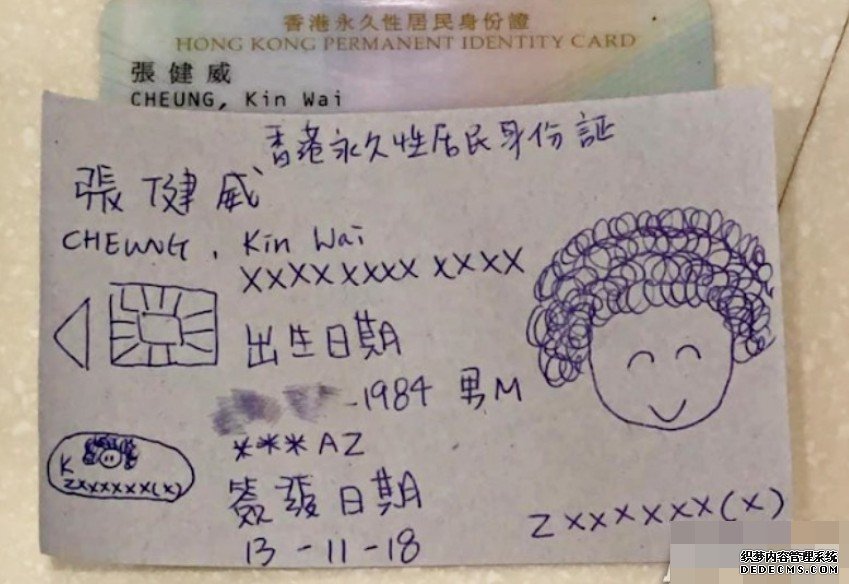 香港永久性居民身份證
HONG KONG PERMANENT IDENTITY CARD
張健威
CHEUNG, Kin Wai
香港永久性居民身份証
張健威
CHEUNG, Kin Wai
XXXX XXXX XXXX
出生日期
-1984 男M
***AZ
簽發日期
13-11-18
K
ZXXXXXX(X)
ZXXXXXX(X)
织梦内容管理系统
DEDECMS.COM